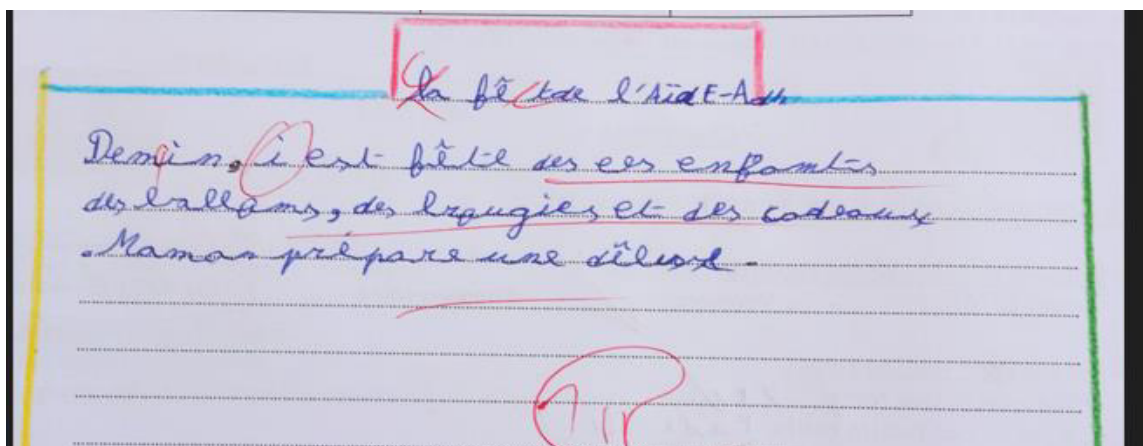 La fête de l'Aïd E-Adh
Demain, i est fêtè des ees enfamts
des ballams, des braugies et des cadeaux
.Maman prépare une